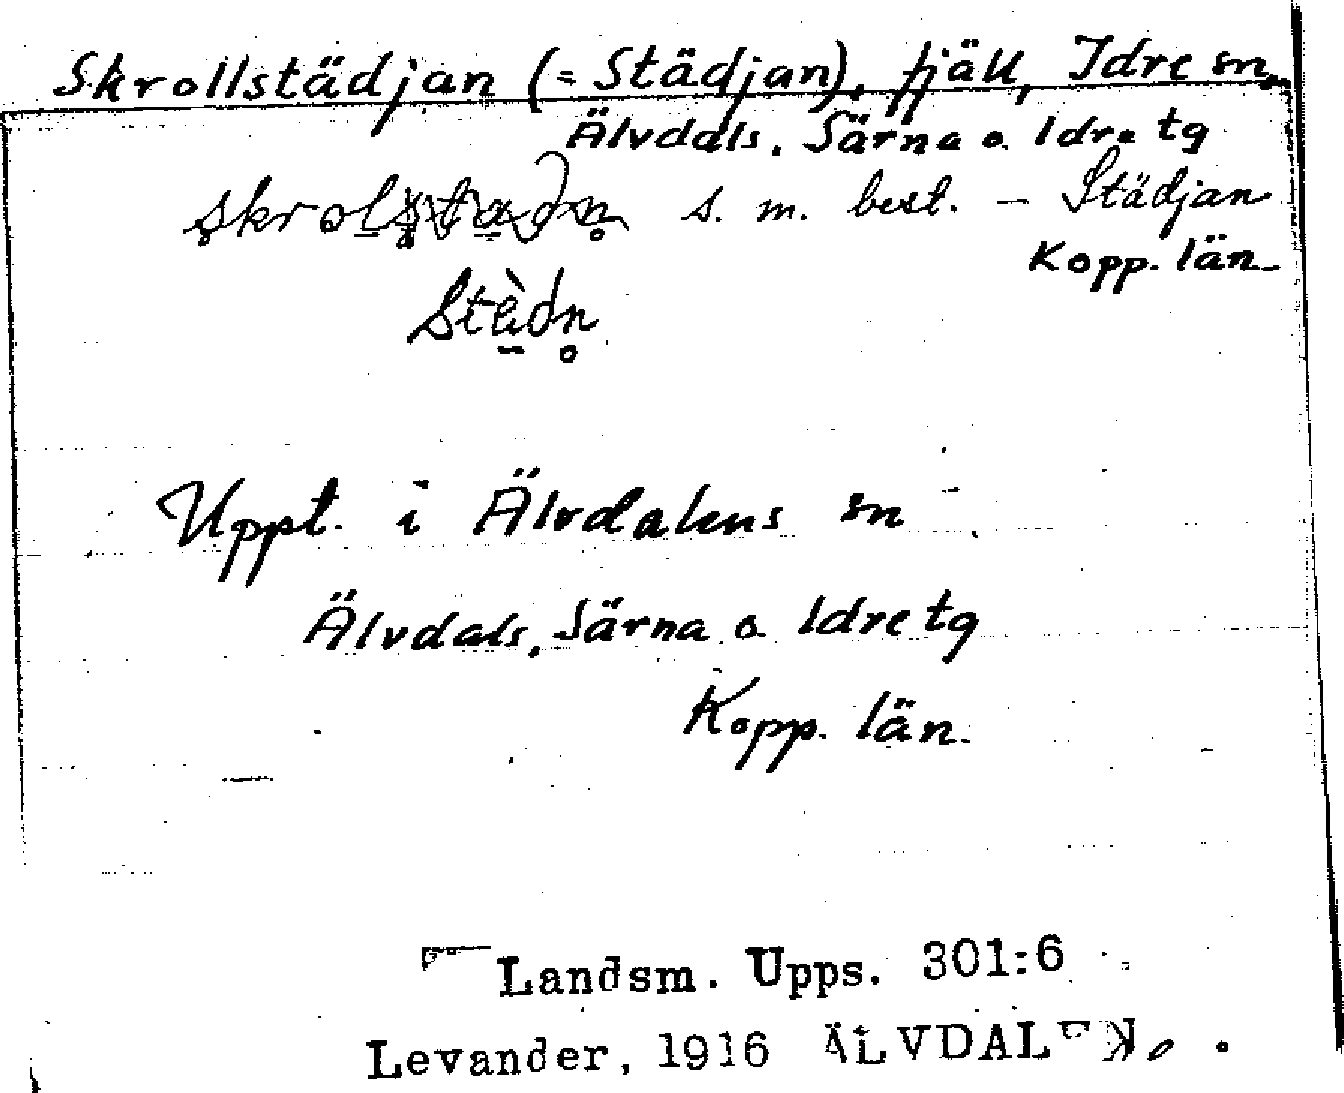 Skrollstädjan (= Städjan), fjäll, Idre sn.
Älvdals, Särna o. Idre tg
s. m. best. – Städjan
Kopp. län
Uppt. i Älvdalens sn
Älvdals, Särna o. Idre tg
Kopp. län.
Landsm. Upps. 301:6
Levander, 1916 ÄLVDALEN